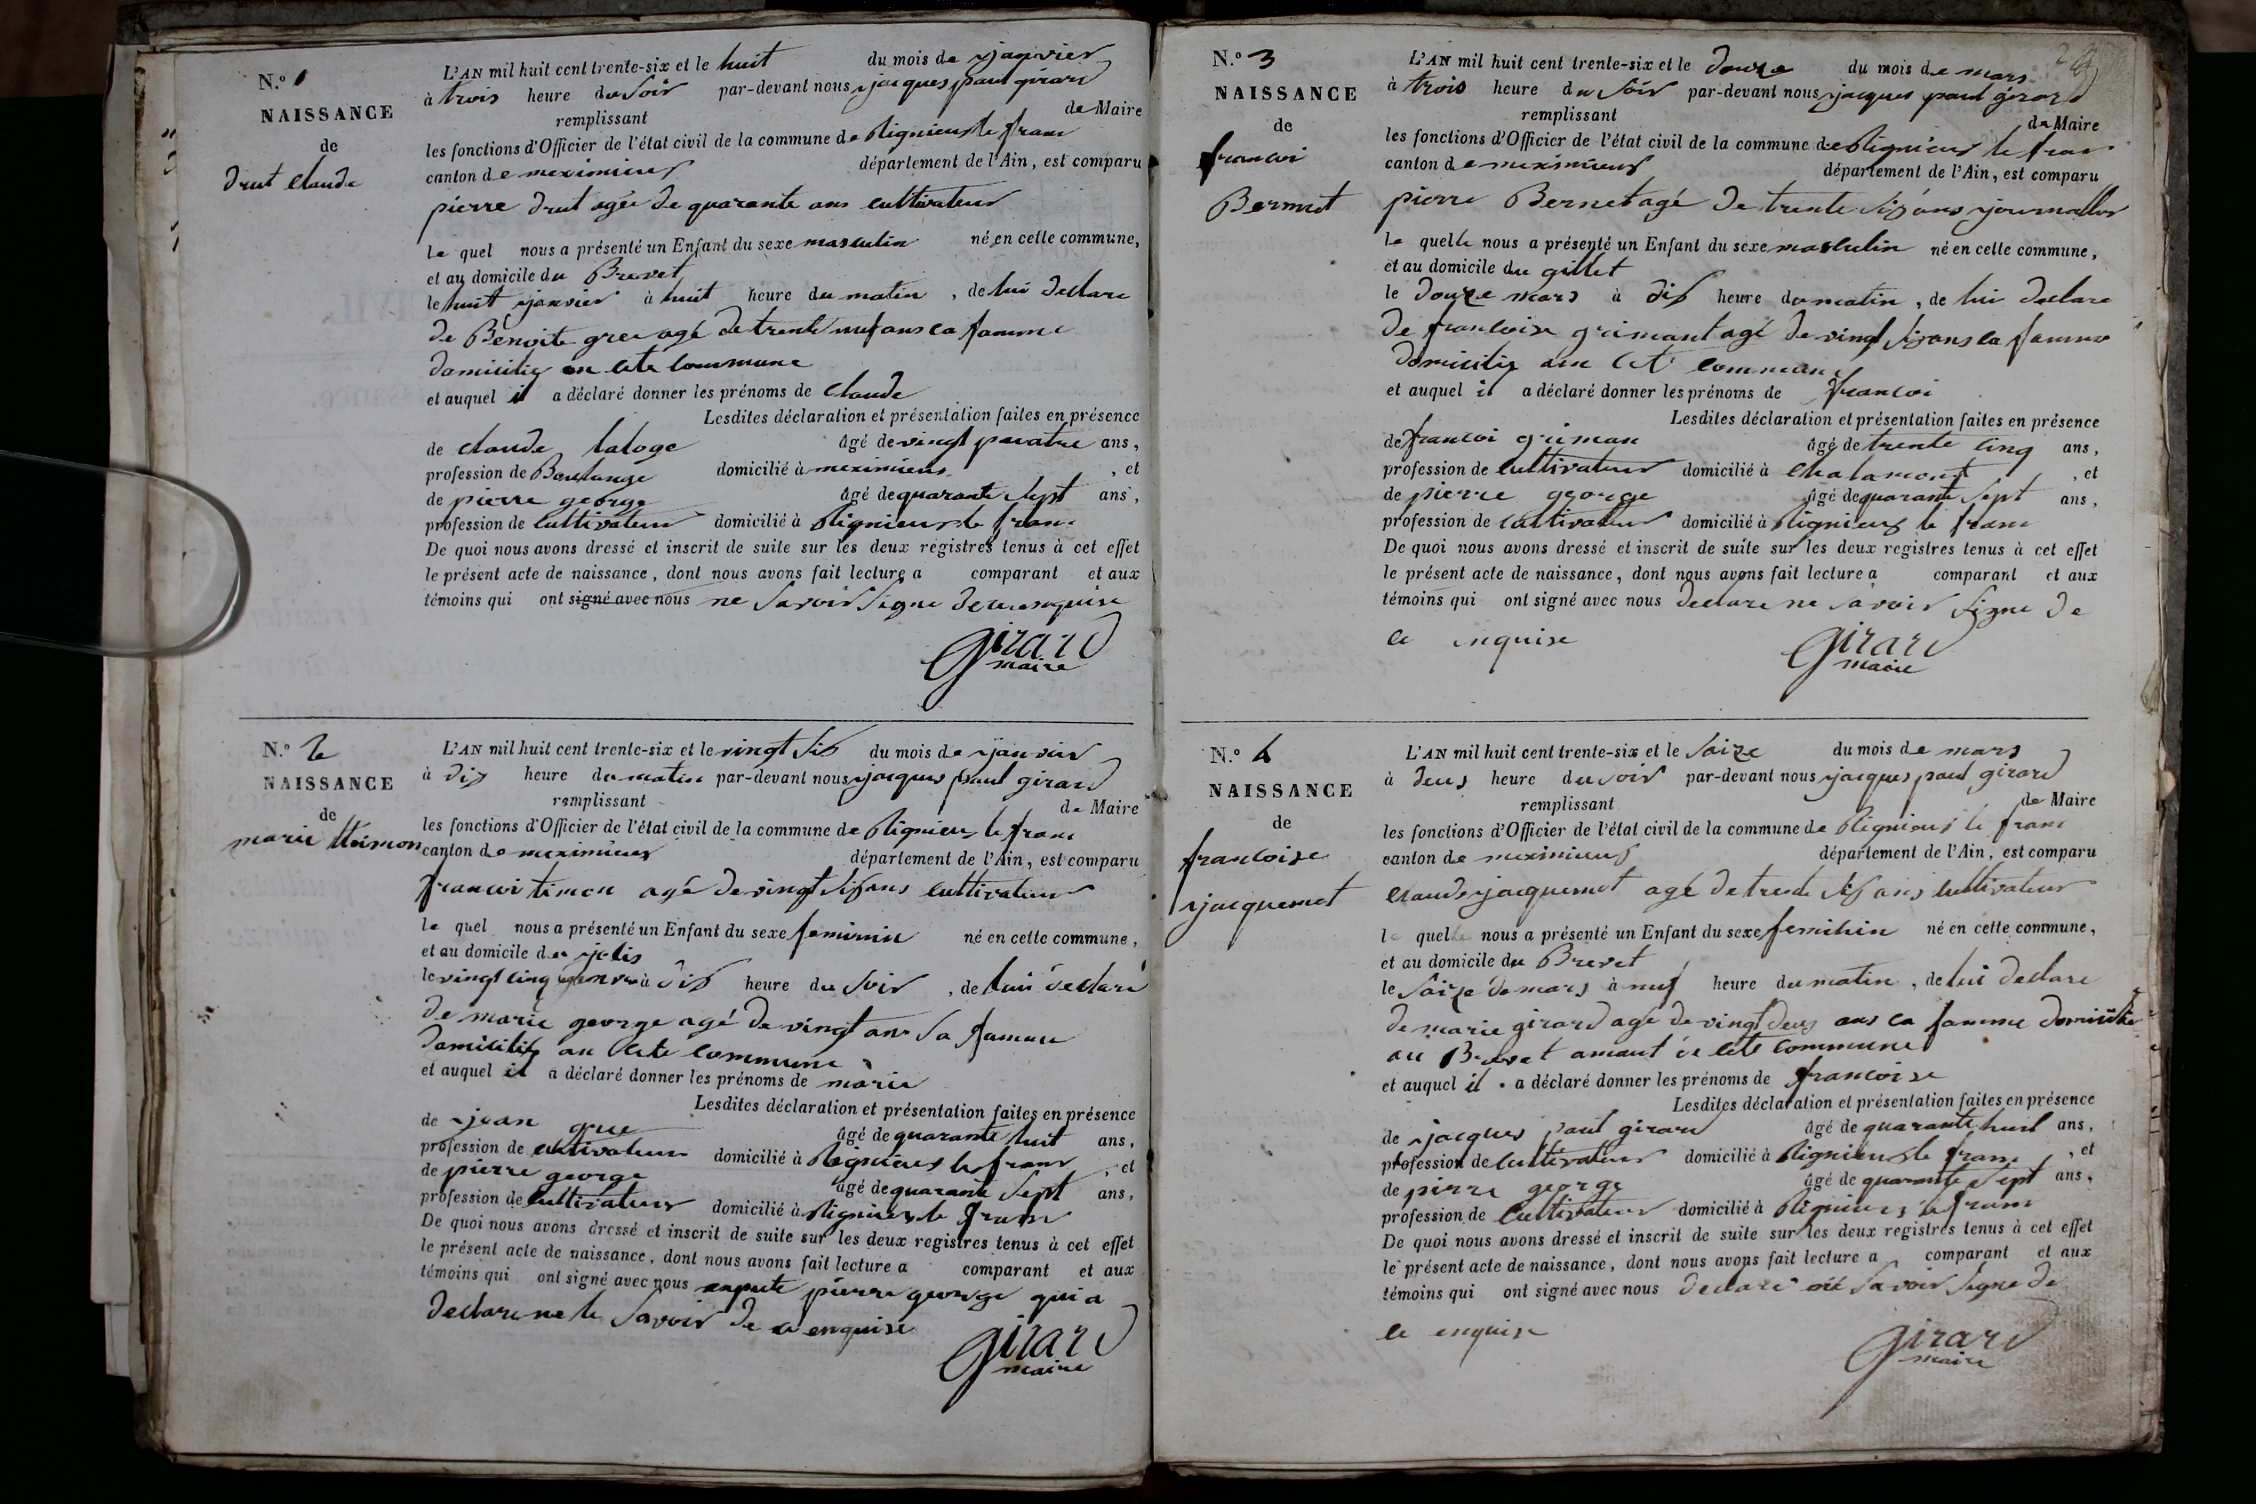 N.º 1
NAISSANCE
de
Drut Claude
L'AN mil huit cent trente-six et le huit du mois de janvier
à trois heure du soir par-devant nous jacques paul girard
remplissant de Maire
les fonctions d'Officier de l'état civil de la commune de Rignieux le franc
canton de meximieux département de l'Ain, est comparu
pierre drut agée de quarante ans cultivateur
le quel nous a présenté un Enfant du sexe masculin né en cette commune,
et au domicile du Brevet
le huit janvier à huit heure du matin, de lui declare
de Benoite gree agé de trente neuf ans ca famme
domicilié en cete commune
et auquel il a déclaré donner les prénoms de claude
Lesdites déclaration et présentation faites en présence
de claude laloge âgé de vingt quatre ans,
profession de Boulangé domicilié à meximieux, et
de pierre george âgé de quarante sept ans,
profession de cultivateur domicilié à Rignieux le franc
De quoi nous avons dressé et inscrit de suite sur les deux registres tenus à cet effet
le présent acte de naissance, dont nous avons fait lecture a comparant et aux
témoins qui ont signé avec nous ne savoir signe de ce enquise
Girard
maire
N.º 2
NAISSANCE
de
marie thimon
L'AN mil huit cent trente-six et le vingt six du mois de janvier
à dix heure du matin par-devant nous jacques paul girard
remplissant de Maire
les fonctions d'Officier de l'état civil de la commune de Rignieux le franc
canton de meximieux département de l'Ain, est comparu
francoi timon agé de vingt six ans cultivateur
le quel nous a présenté un Enfant du sexe feminin né en cette commune,
et au domicile du
le vingt cinq janvier à dix heure du soir, de lui declare
de marie george agé de vingt ans sa famme
domicilié au cete commune
et auquel il a déclaré donner les prénoms de marie
Lesdites déclaration et présentation faites en présence
de jean grue âgé de quarante huit ans,
profession de cultivateur domicilié à Rignieux le franc, et
de pierre george âgé de quarante sept ans,
profession de cultivateur domicilié à Rignieux le franc
De quoi nous avons dressé et inscrit de suite sur les deux registres tenus à cet effet
le présent acte de naissance, dont nous avons fait lecture a comparant et aux
témoins qui ont signé avec nous pierre george qui a
declare ne le savoir de ce enquise
Girard
maire
N.º 3
NAISSANCE
de
francoi
Bernnet
L'AN mil huit cent trente-six et le douze du mois de mars
à trois heure du soir par-devant nous jacques paul gérard
remplissant de Maire
les fonctions d'Officier de l'état civil de la commune de Rignieux le franc
canton de meximieux département de l'Ain, est comparu
pierre Bernet agé de trente six ans journallier
le quelle nous a présenté un Enfant du sexe masculin né en cette commune,
et au domicile du gillet
le douze mars à dix heure du matin, de lui declare
de francoise grimant agé de vingt six ans ca famme
domicilié au cete commune
et auquel il a déclaré donner les prénoms de francoi
Lesdites déclaration et présentation faites en présence
de francoi griman âgé de trente cinq ans,
profession de cultivateur domicilié à chalamont, et
de pierre george âgé de quarante sept ans,
profession de cultivateur domicilié à Rignieux le franc
De quoi nous avons dressé et inscrit de suite sur les deux registres tenus à cet effet
le présent acte de naissance, dont nous avons fait lecture a comparant et aux
témoins qui ont signé avec nous declare ne savoir signe de
ce enquise
Girard
maire
N.º 4
NAISSANCE
de
francoise
jacquemot
L'AN mil huit cent trente-six et le saize du mois de mars
à deux heure du soir par-devant nous jacques paul girard
remplissant de Maire
les fonctions d'Officier de l'état civil de la commune de Rignieux le franc
canton de meximieux département de l'Ain, est comparu
claude jacquemot agé de trente six ans cultivateur
le quelle nous a présenté un Enfant du sexe feminin né en cette commune,
et au domicile du Brevet
le saize de mars à neuf heure du matin, de lui declare
de marie girard agé de vingt deux ans ca famme domicilié
au Brevet amant de cete commune
et auquel il a déclaré donner les prénoms de francoise
Lesdites déclaration et présentation faites en présence
de jacques paul girard âgé de quarante huit ans,
profession de cultivateur domicilié à Rignieux le franc, et
de pierre george âgé de quarante sept ans,
profession de cultivateur domicilié à Rignieux le franc
De quoi nous avons dressé et inscrit de suite sur les deux registres tenus à cet effet
le présent acte de naissance, dont nous avons fait lecture a comparant et aux
témoins qui ont signé avec nous declare ne savoir signe de
ce enquise
Girard
maire